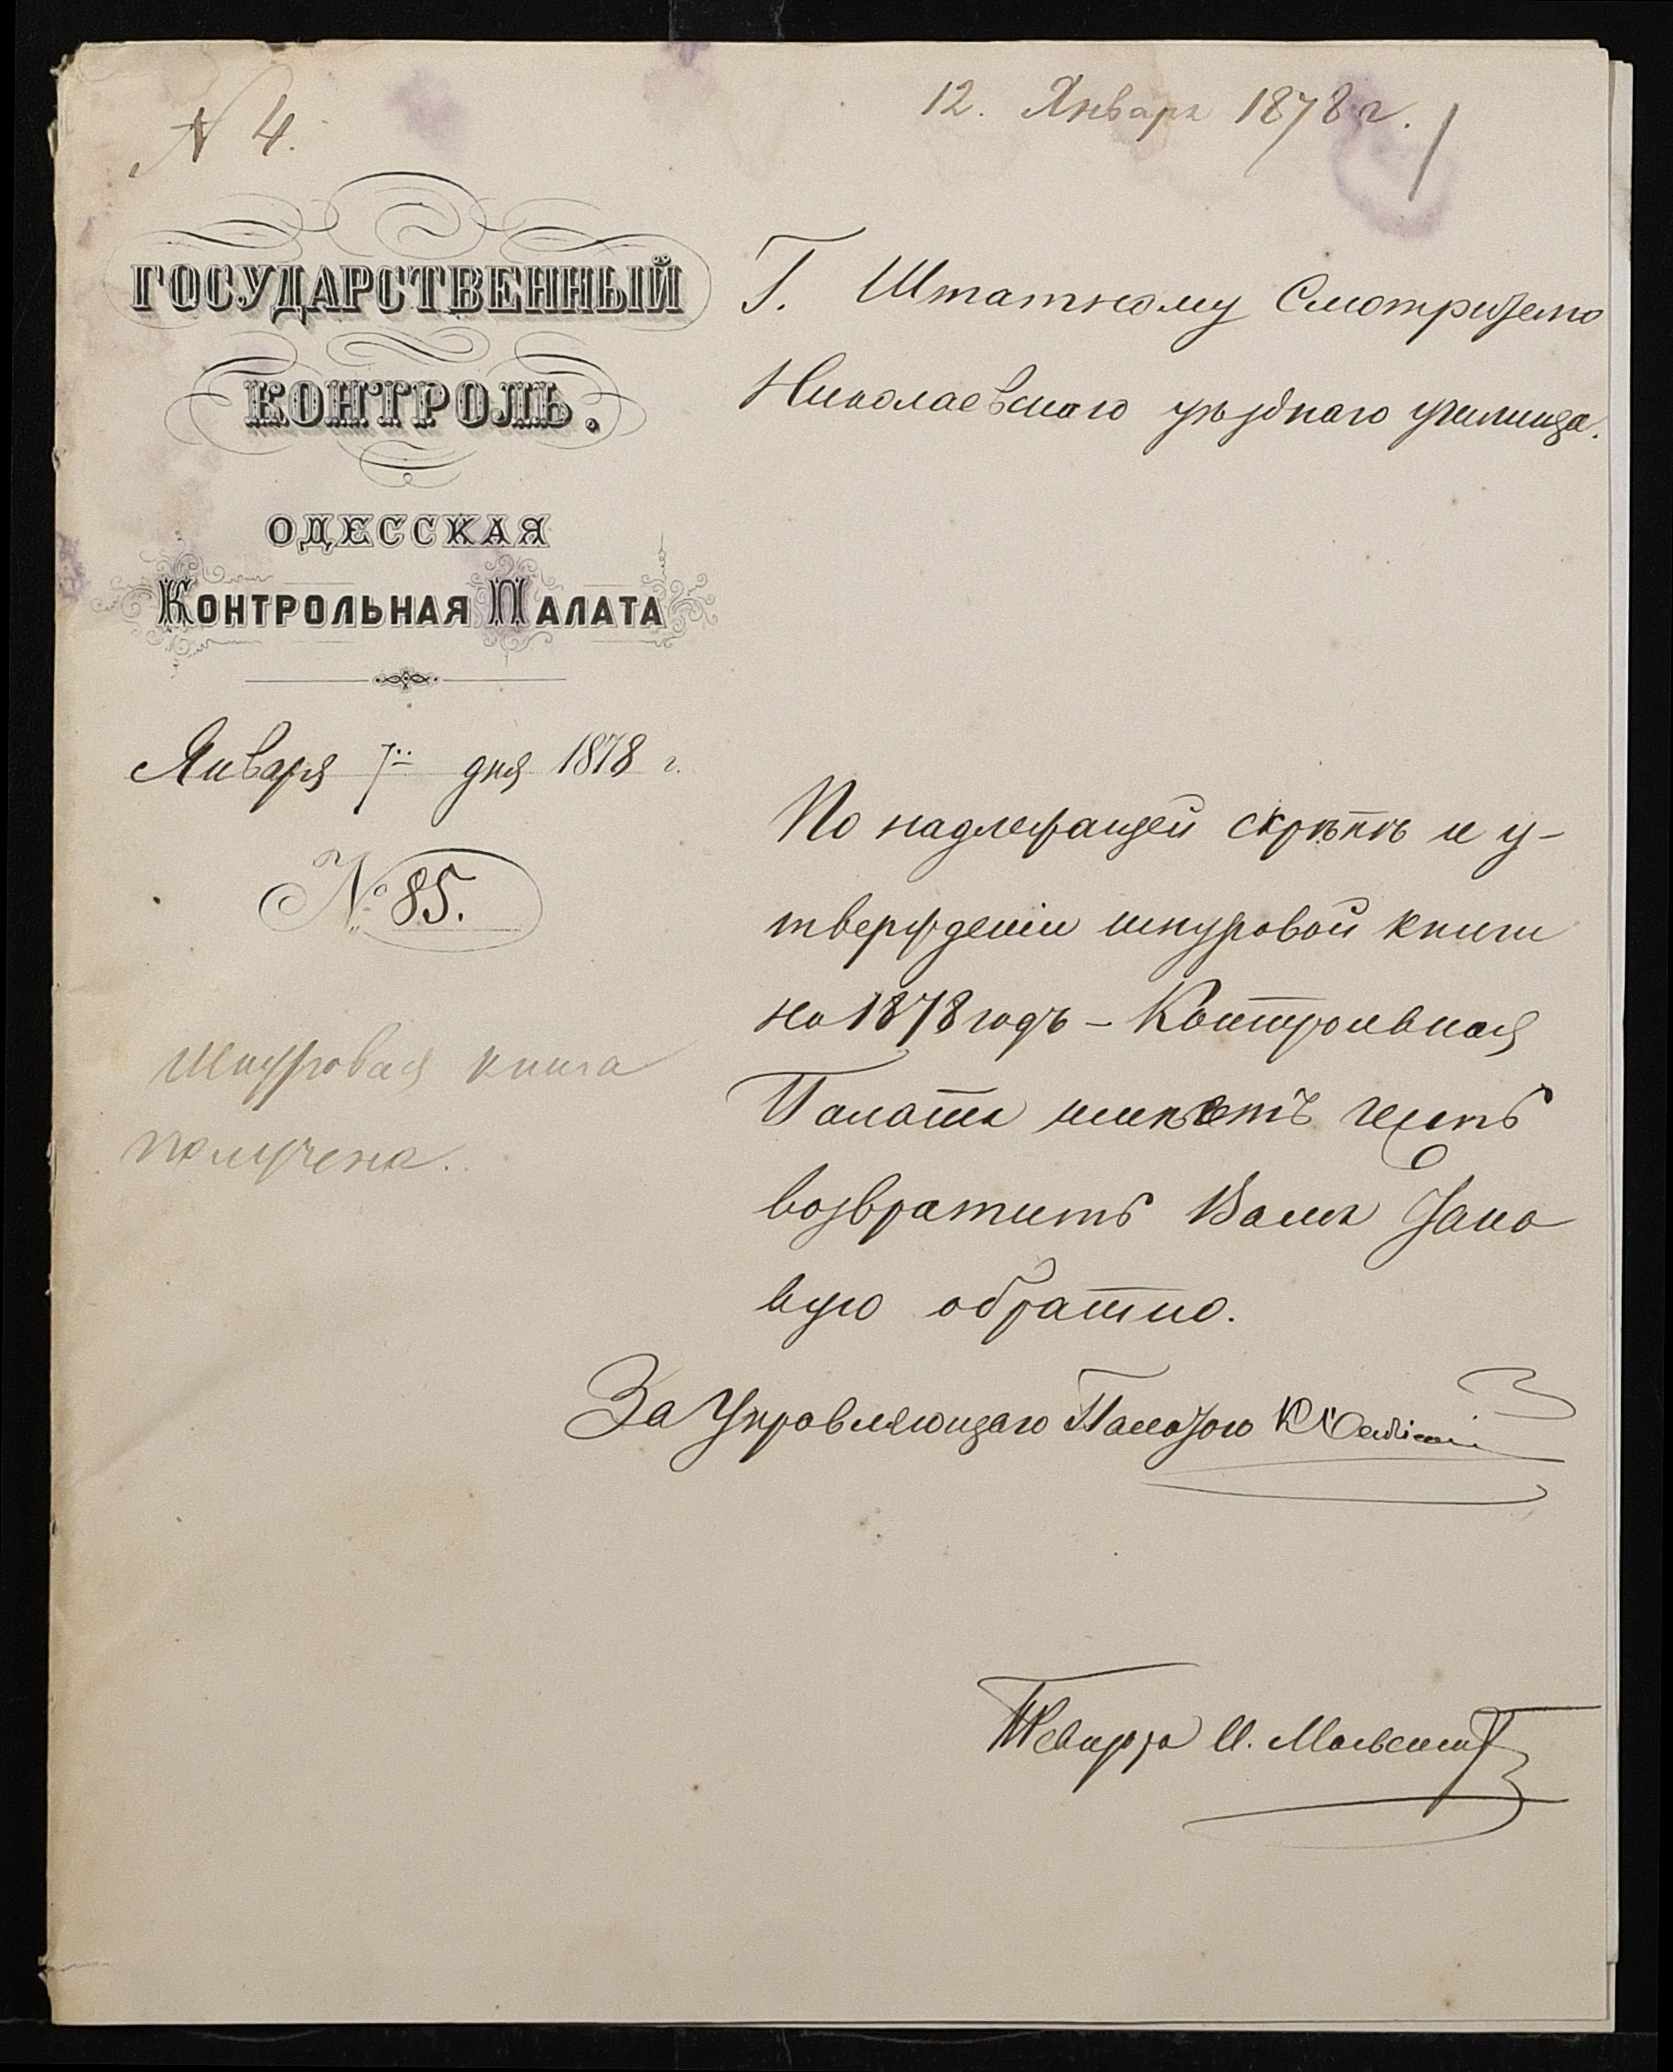 N 4.
12. Января 1878 г.
ГОСУДАРСТВЕННЫЙ
КОНТРОЛЬ.
ОДЕССКАЯ
КОНТРОЛЬНАЯ ПАЛАТА
Января 7 дня 1878 г.
№ 85.
Шнуровая книга
получена.
Г. Штатному Смотрителю
Николаевскаго уѣзднаго училища.
По надлежащей скрѣпѣ и у-
твержденіи шнуровой книги
на 1878 годъ – Контрольная
Палата имѣетъ честь
возвратить Вамъ тако
вую обратно.
За Управляющаго Палатою